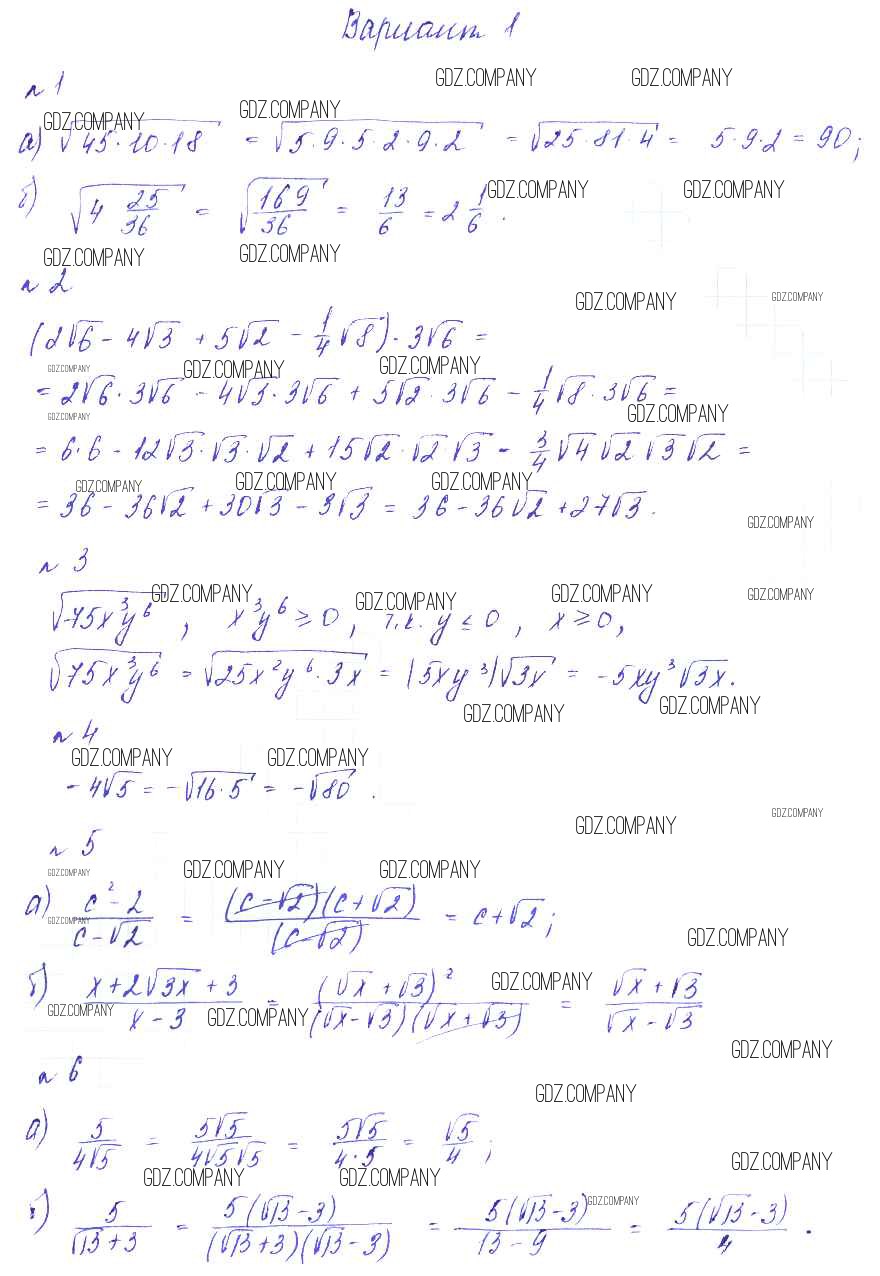 Вариант 1
GDZ.COMPANY GDZ.COMPANY
№ 1
GDZ.COMPANY GDZ.COMPANY
а) √(45·10·18) = √(5·9·5·2·9·2) = √(25·81·4) = 5·9·2 = 90;
б) √(4 25/36) = √(169/36) = 13/6 = 2 1/6.
GDZ.COMPANY GDZ.COMPANY
GDZ.COMPANY GDZ.COMPANY
№ 2
GDZ.COMPANY GDZ.COMPANY
(2√6 - 4√3 + 5√2 - 1/4 √8)·3√6 =
GDZ.COMPANY GDZ.COMPANY GDZ.COMPANY
= 2√6·3√6 - 4√3·3√6 + 5√2·3√6 - 1/4 √8·3√6 =
GDZ.COMPANY GDZ.COMPANY
= 6·6 - 12√3·√3·√2 + 15√2·√2·√3 - 3/4 √4 √2 √3 √2 =
GDZ.COMPANY GDZ.COMPANY GDZ.COMPANY
= 36 - 36√2 + 30√3 - 3√3 = 36 - 36√2 + 27√3.
GDZ.COMPANY
№ 3
GDZ.COMPANY GDZ.COMPANY GDZ.COMPANY GDZ.COMPANY
√(75x³y⁶), x³y⁶ ≥ 0, т.к. y ≤ 0, x ≥ 0,
√(75x³y⁶) = √(25x²y⁶·3x) = |5xy³|√(3x) = -5xy³√(3x).
GDZ.COMPANY GDZ.COMPANY
№ 4
GDZ.COMPANY GDZ.COMPANY
-4√5 = -√(16·5) = -√80.
GDZ.COMPANY GDZ.COMPANY
№ 5
GDZ.COMPANY GDZ.COMPANY GDZ.COMPANY
а) (c² - 2)/(c - √2) = (c - √2)(c + √2)/(c - √2) = c + √2;
GDZ.COMPANY GDZ.COMPANY
б) (x + 2√(3x) + 3)/(x - 3) = (√x + √3)²/((√x - √3)(√x + √3)) = (√x + √3)/(√x - √3)
GDZ.COMPANY GDZ.COMPANY GDZ.COMPANY
GDZ.COMPANY
№ 6
GDZ.COMPANY
а) 5/(4√5) = 5√5/(4√5√5) = 5√5/(4·5) = √5/4;
GDZ.COMPANY GDZ.COMPANY GDZ.COMPANY
GDZ.COMPANY
б) 5/(√13 + 3) = 5(√13 - 3)/((√13 + 3)(√13 - 3)) = 5(√13 - 3)/(13 - 9) = 5(√13 - 3)/4.